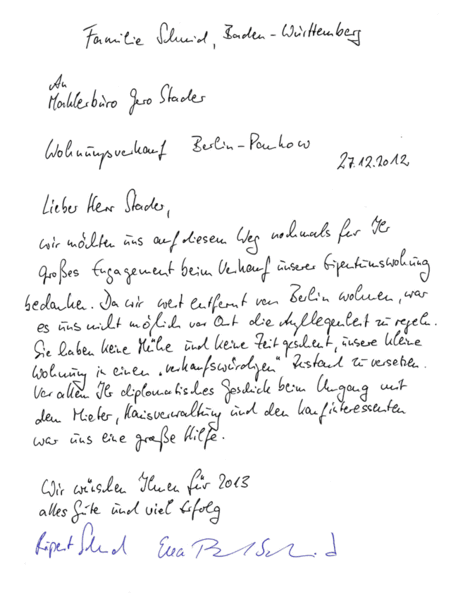 Familie Schmid, Baden-Württemberg
An
Maklerbüro Jero Stader
Wohnungsverkauf Berlin-Pankow
27.12.2012
Lieber Herr Stader,
wir möchten uns auf diesem Weg nochmals für Ihr
großes Engagement beim Verkauf unserer Eigentumswohnung
bedanken. Da wir weit entfernt von Berlin wohnen, war
es uns nicht möglich vor Ort die Angelegenheit zu regeln.
Sie haben keine Mühe und keine Zeit gescheut, unsere kleine
Wohnung in einen „verkaufswürdigen" Zustand zu versetzen.
Vor allem Ihr diplomatisches Geschick beim Umgang mit
dem Mieter, Hausverwaltung und den Kaufinteressenten
war uns eine große Hilfe.
Wir wünschen Ihnen für 2013
alles Gute und viel Erfolg